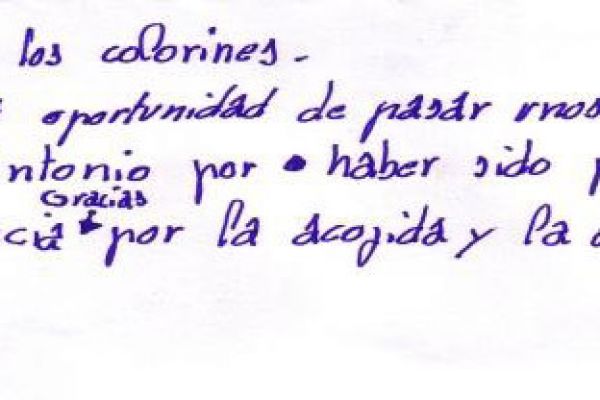 los colorines.
oportunidad de pasar unos
ntonio por haber sido p
Gracias
cia por la acojida y la